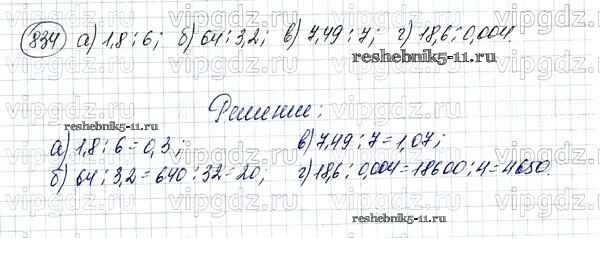 834 а) 1,8 : 6; б) 64 : 3,2; в) 7,49 : 7; г) 18,6 : 0,004.
reshebnik5-11.ru
Решение:
reshebnik5-11.ru
а) 1,8 : 6 = 0,3; в) 7,49 : 7 = 1,07;
б) 64 : 3,2 = 640 : 32 = 20; г) 18,6 : 0,004 = 18600 : 4 = 4650.
reshebnik5-11.ru
vipgdz.ru